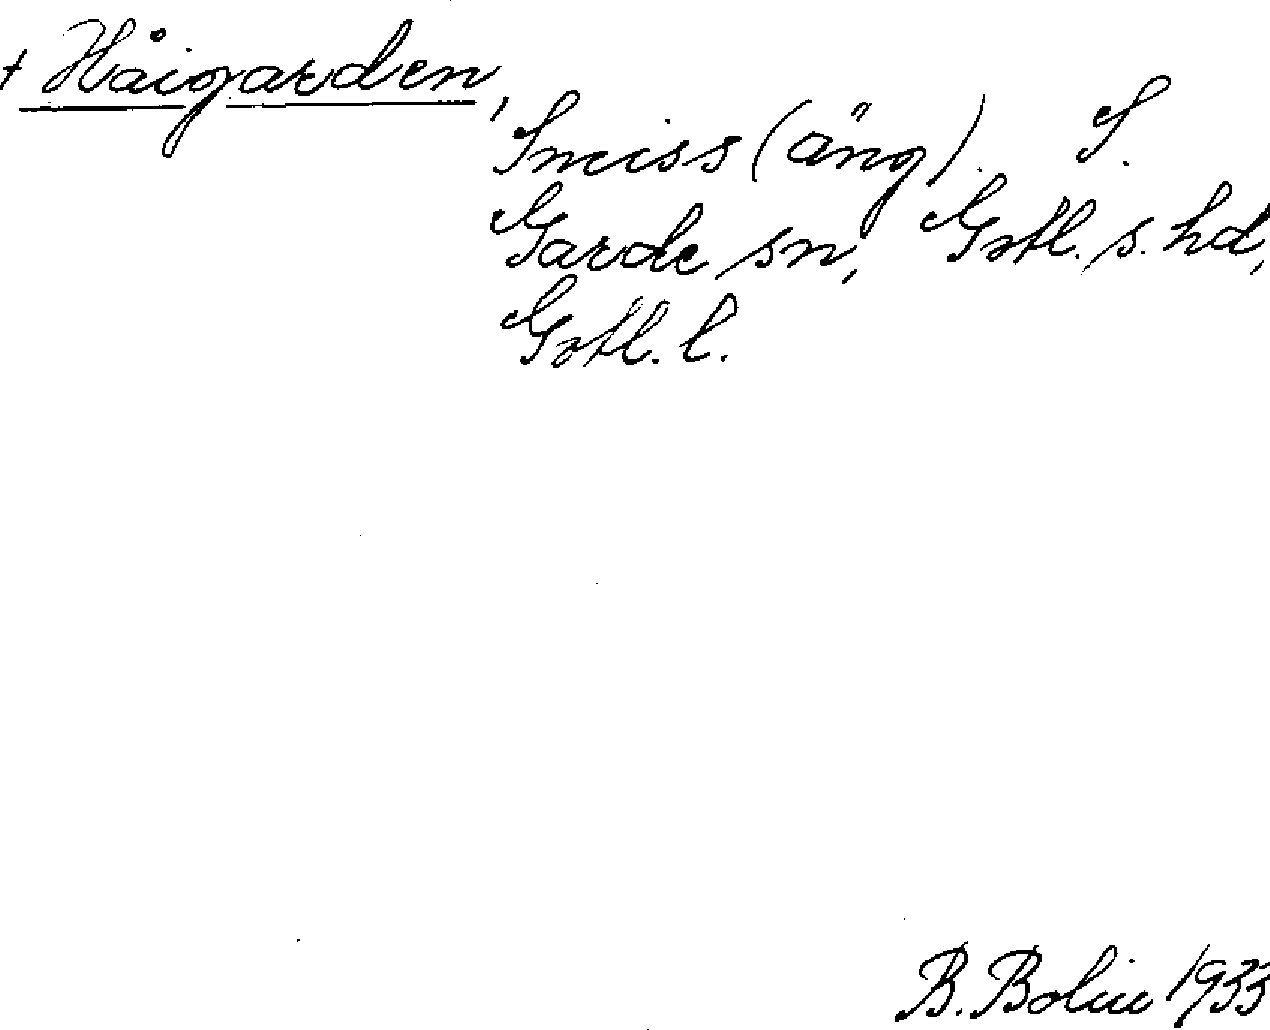 + Håigarden,
Sneiss (äng). S.
Garde sn, Gotl. s. hd,
Gotl. l.
B. Bolin 1933